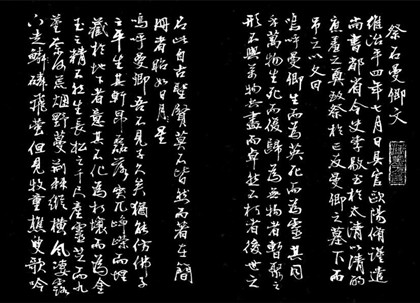 祭石曼卿文
維治平四年七月日具官歐陽脩謹遣
尚書都省令史李敭至於太清以清酌
庶羞之奠致祭於亡友曼卿之墓下而
吊之以文曰
嗚呼曼卿生而為英死而為靈其同
乎萬物生死而復歸為無物者暫聚之
形不與萬物共盡而卓然不朽者後世之
名此自古聖賢莫不皆然而著在簡
冊者昭如日星
嗚呼曼卿吾不見子久矣猶能仿佛子
之平生其軒昂磊落突兀崢嶸而埋
藏於地下者意其不化為朽壤而為金
玉精不然生長松之千尺產靈芝而九
莖奈何荒烟野蔓荊棘縱橫風淒露
下走燐飛螢但見牧童樵叟歌吟